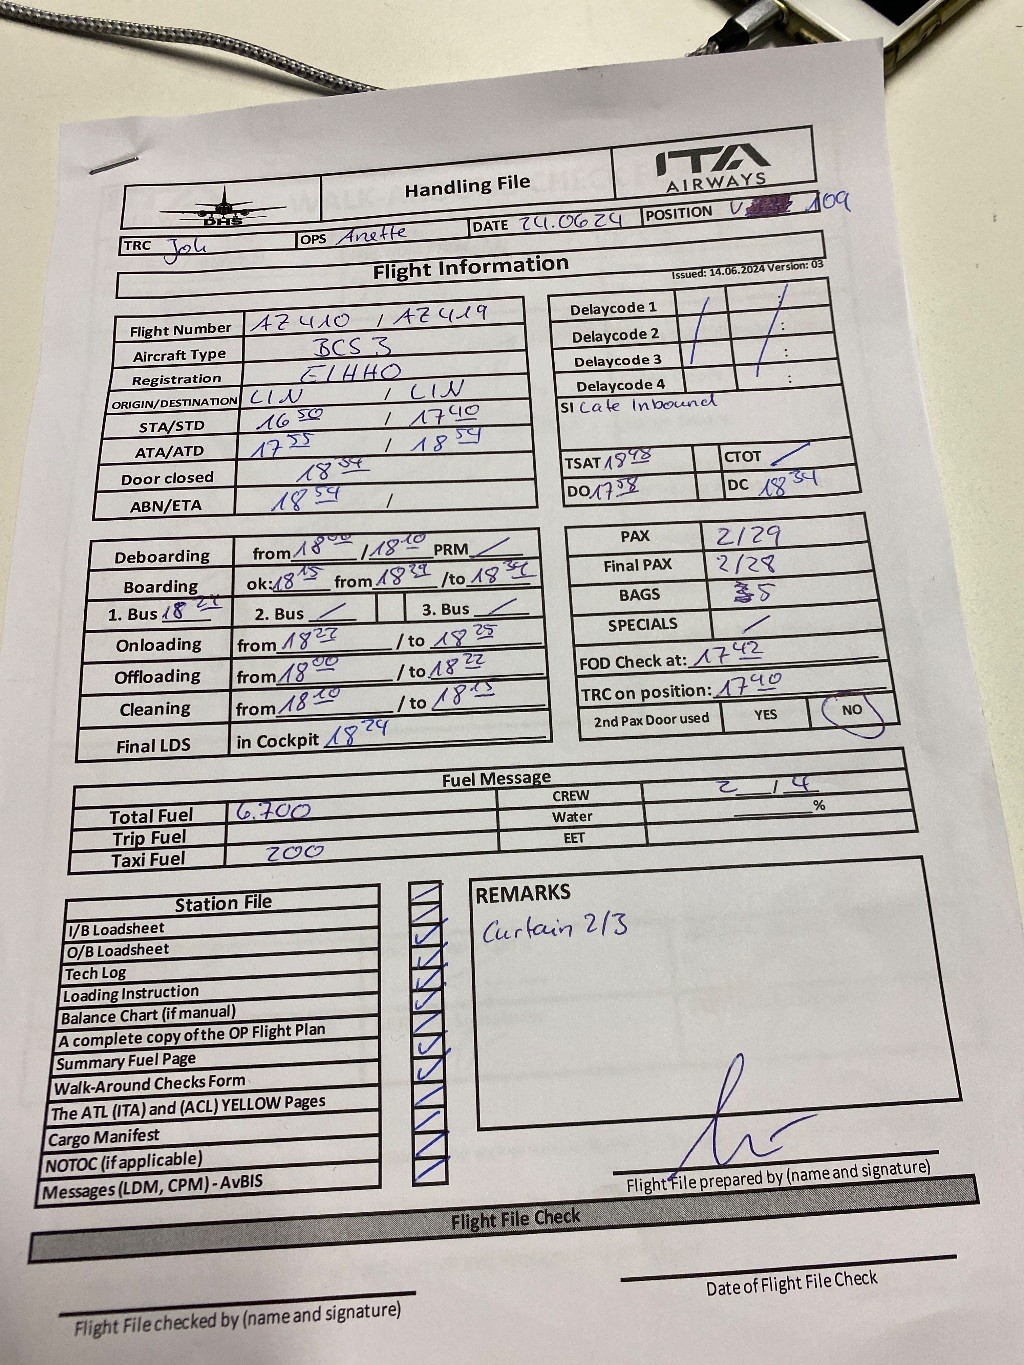 DHS
Handling File
ITA
AIRWAYS
TRC Joh OPS Anette DATE 24.06.24 POSITION V 109
Flight Information
Issued: 14.06.2024 Version: 03
Flight Number AZ410 / AZ419
Aircraft Type BCS3
Registration EIHHO
ORIGIN/DESTINATION LIN / LIN
STA/STD 16 50 / 17 40
ATA/ATD 17 55 / 18 54
Door closed 18 34
ABN/ETA 18 54 /
Delaycode 1 :
Delaycode 2 :
Delaycode 3 :
Delaycode 4 :
SI Late Inbound
TSAT 18 48 CTOT /
DO 17 58 DC 18 34
Deboarding from 18 00 / 18 10 PRM /
Boarding ok: 18 15 from 18 29 / to 18 34
1. Bus 18 2. Bus / 3. Bus /
Onloading from 18 22 / to 18 25
Offloading from 18 00 / to 18 22
Cleaning from 18 10 / to 18 15
Final LDS in Cockpit 18 24
PAX 2/29
Final PAX 2/28
BAGS 5
SPECIALS /
FOD Check at: 17 42
TRC on position: 17 40
2nd Pax Door used YES NO
Fuel Message
Total Fuel 6.700 CREW 2 / 4
Trip Fuel Water %
Taxi Fuel 200 EET
Station File
I/B Loadsheet
O/B Loadsheet
Tech Log
Loading Instruction
Balance Chart (if manual)
A complete copy of the OP Flight Plan
Summary Fuel Page
Walk-Around Checks Form
The ATL (ITA) and (ACL) YELLOW Pages
Cargo Manifest
NOTOC (if applicable)
Messages (LDM, CPM) - AvBIS
REMARKS
Curtain 2/3
Flight File prepared by (name and signature)
Flight File Check
Flight File checked by (name and signature)
Date of Flight File Check